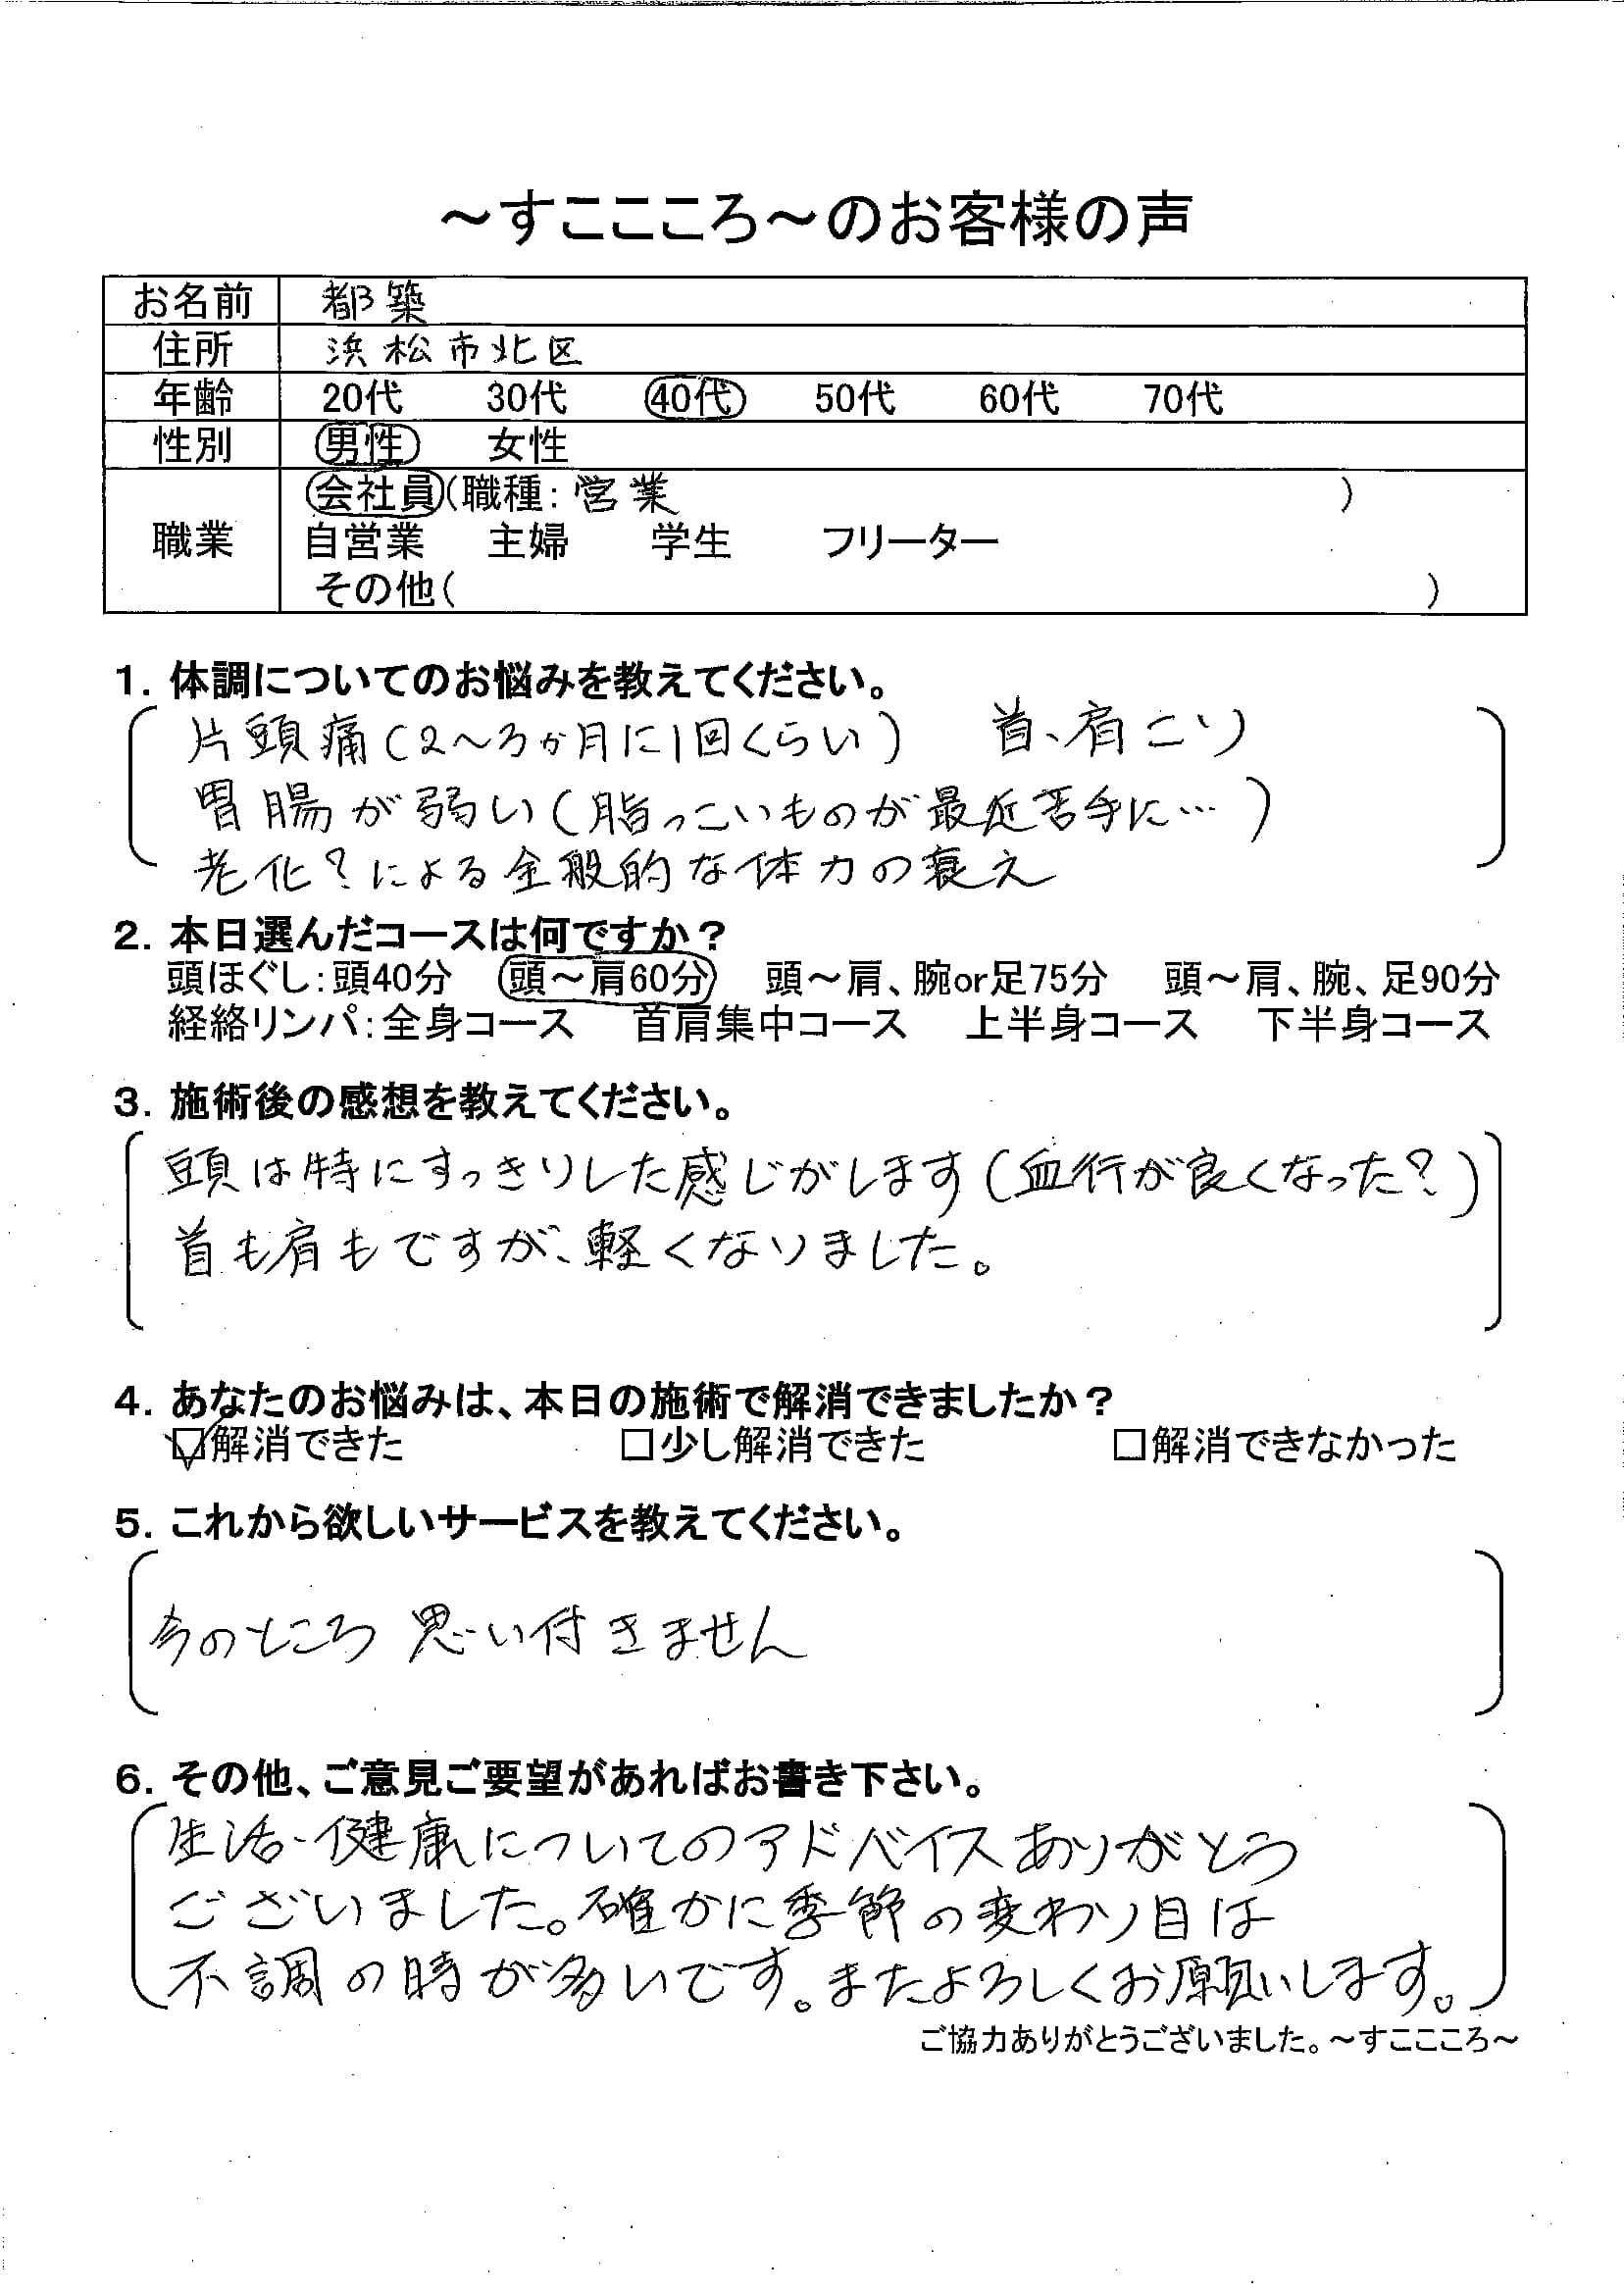 ～すこここころ～のお客様の声
お名前 都築
住所 浜松市北区
年齢 20代 30代 40代 50代 60代 70代
性別 男性 女性
会社員(職種:営業 )
職業 自営業 主婦 学生 フリーター
その他( )
1. 体調についてのお悩みを教えてください。
片頭痛(2～3か月に1回くらい) 首、肩こり
胃腸が弱い(脂っこいものが最近苦手に…)
老化?による全般的な体力の衰え
2. 本日選んだコースは何ですか?
頭ほぐし:頭40分 頭～肩60分 頭～肩、腕or足75分 頭～肩、腕、足90分
経絡リンパ:全身コース 首肩集中コース 上半身コース 下半身コース
3. 施術後の感想を教えてください。
頭は特にすっきりした感じがします(血行が良くなった?)
首も肩もですが、軽くなりました。
4. あなたのお悩みは、本日の施術で解消できましたか?
☑解消できた □少し解消できた □解消できなかった
5. これから欲しいサービスを教えてください。
今のところ 思い付きません
6. その他、ご意見ご要望があればお書き下さい。
生活・健康についてのアドバイスありがとう
ございました。確かに季節の変わり目は
不調の時が多いです。またよろしくお願いします。
ご協力ありがとうございました。～すこここころ～